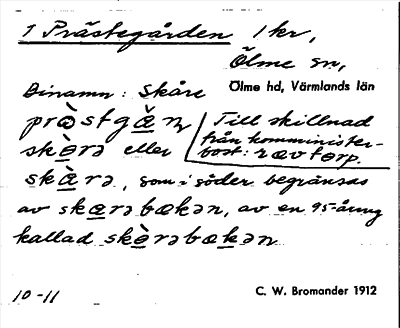 1 Prästegården 1 kr,
Ölme sn,
Ölme hd, Värmlands län
Binamn: Skåre
præ̀stgæ̌n
Till skillnad
från komminister-
bost: rævtorp.
skɵ̀rə eller
skæ̀rə, som i söder begränsas
av skærəbækən, av en 95-åring
kallad skɵ̀rəbækən
10-11
C. W. Bromander 1912